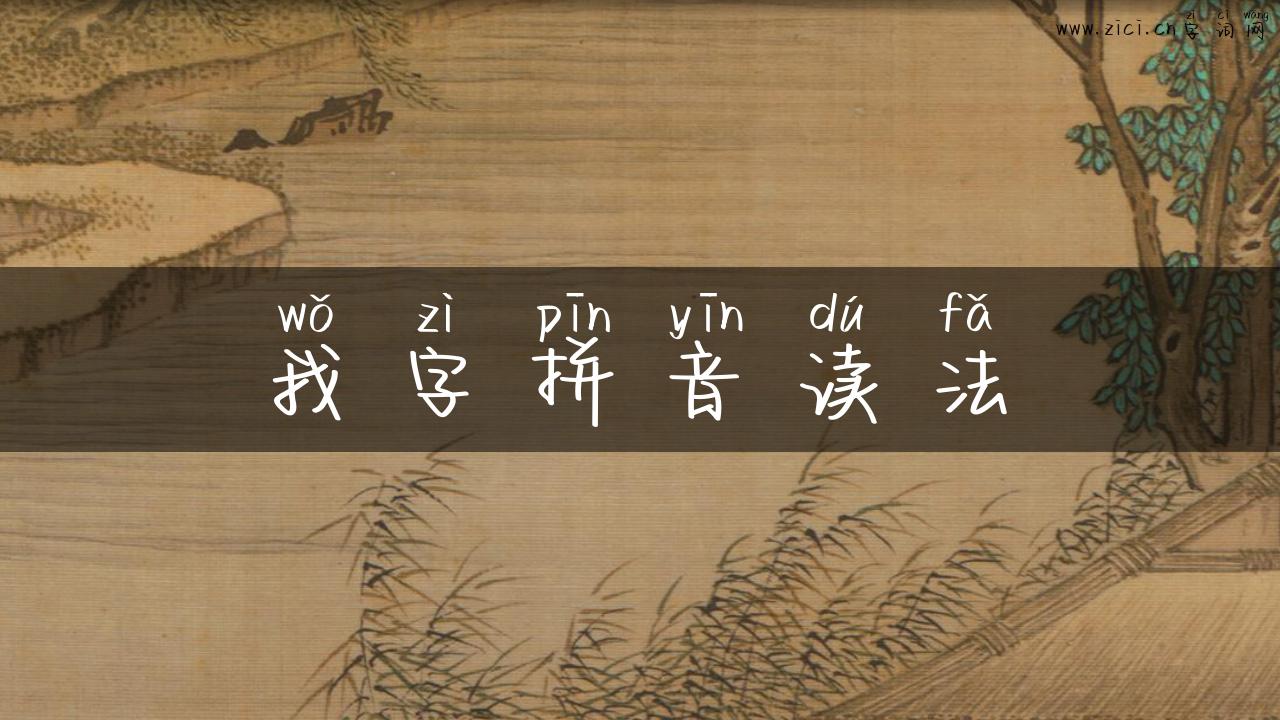 zì cí wǎng
www.zici.cn字词网
wǒ zì pīn yīn dú fǎ
我字拼音读法